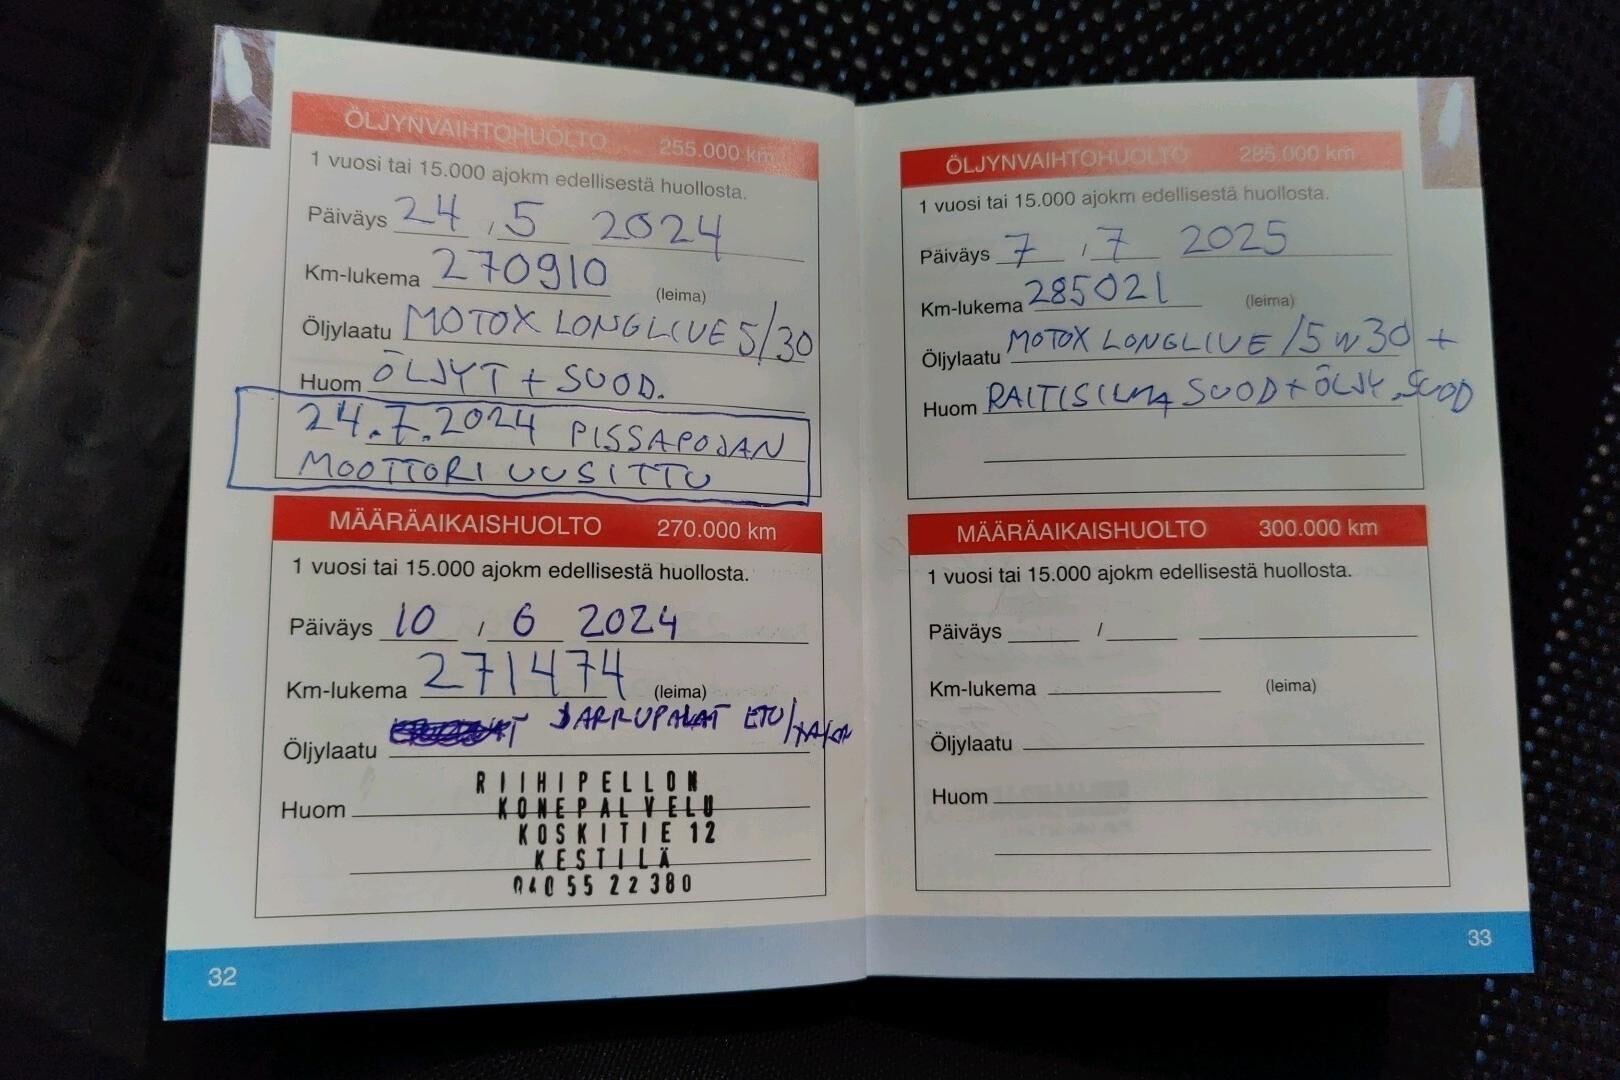 ÖLJYNVAIHTOHUOLTO 255.000 km
1 vuosi tai 15.000 ajokm edellisestä huollosta.
Päiväys 24 , 5 2024
Km-lukema 270910 (leima)
Öljylaatu MOTOX LONGLIVE 5/30
Huom ÖLJYT + SUOD.
24.7.2024 PISSAPOJAN
MOOTTORI UUSITTU
MÄÄRÄAIKAISHUOLTO 270.000 km
1 vuosi tai 15.000 ajokm edellisestä huollosta.
Päiväys 10 / 6 2024
Km-lukema 271474 (leima)
Öljylaatu JARRUPALAT ETU/
Huom
RIIHIPELLON
KONEPALVELU
KOSKITIE 12
KESTILÄ
040 55 22 380
32
ÖLJYNVAIHTOHUOLTO 285.000 km
1 vuosi tai 15.000 ajokm edellisestä huollosta.
Päiväys 7 , 7 2025
Km-lukema 285021 (leima)
Öljylaatu MOTOX LONGLIVE /5W30 +
Huom RAITISILMA SUOD + ÖLJY.SUOD
MÄÄRÄAIKAISHUOLTO 300.000 km
1 vuosi tai 15.000 ajokm edellisestä huollosta.
Päiväys /
Km-lukema (leima)
Öljylaatu
Huom
33